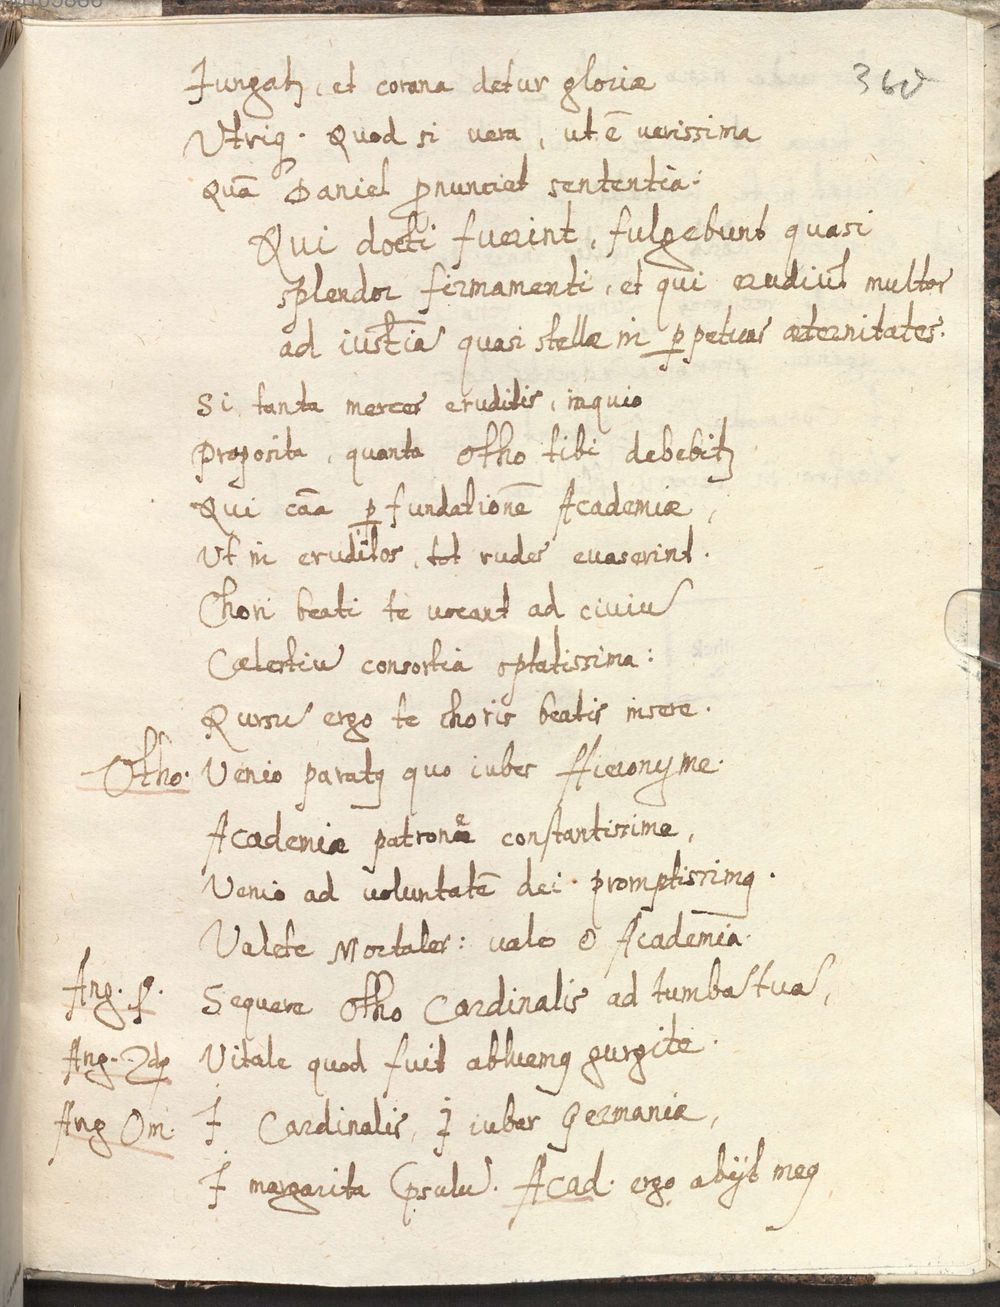 360
Jungatꝫ, et corona detur gloriæ
Utriq. Quod si vera, ut ē verissima
Quā Daniel ꝓnunciet sententia:
Qui docti fuerint, fulgebunt quasi
splendor firmamenti, et qui erudiūt multos
ad iustitiā quasi stellæ in ꝑpetuas æternitates.
Si tanta merces eruditis, inquio
Proposita, quanta Otho tibi debebitꝫ
Qui cāā ꝑ fundationē Academiæ,
Ut in eruditos, tot rudes evaserint.
Chori beati te vocant ad civiū
Cælestiū consortia optatissima:
Rursū ergo te choris beatis insere.
Otho. Venio paratꝫ quo iubes Hieronyme.
Academiæ patrone constantissime,
Venio ad voluntatē dei promptissimꝫ.
Valete Mortales: vale ô Academia.
Ang. p. Sequere Otho Cardinalis ad tumbā tuā,
Ang. 2dꝫ Vitale quod fuit abluemꝫ gurgite.
Ang Om. I Cardinalis, I iubar Germaniæ,
I margarita Cpsulū. Acad. ergo abijt meꝫ